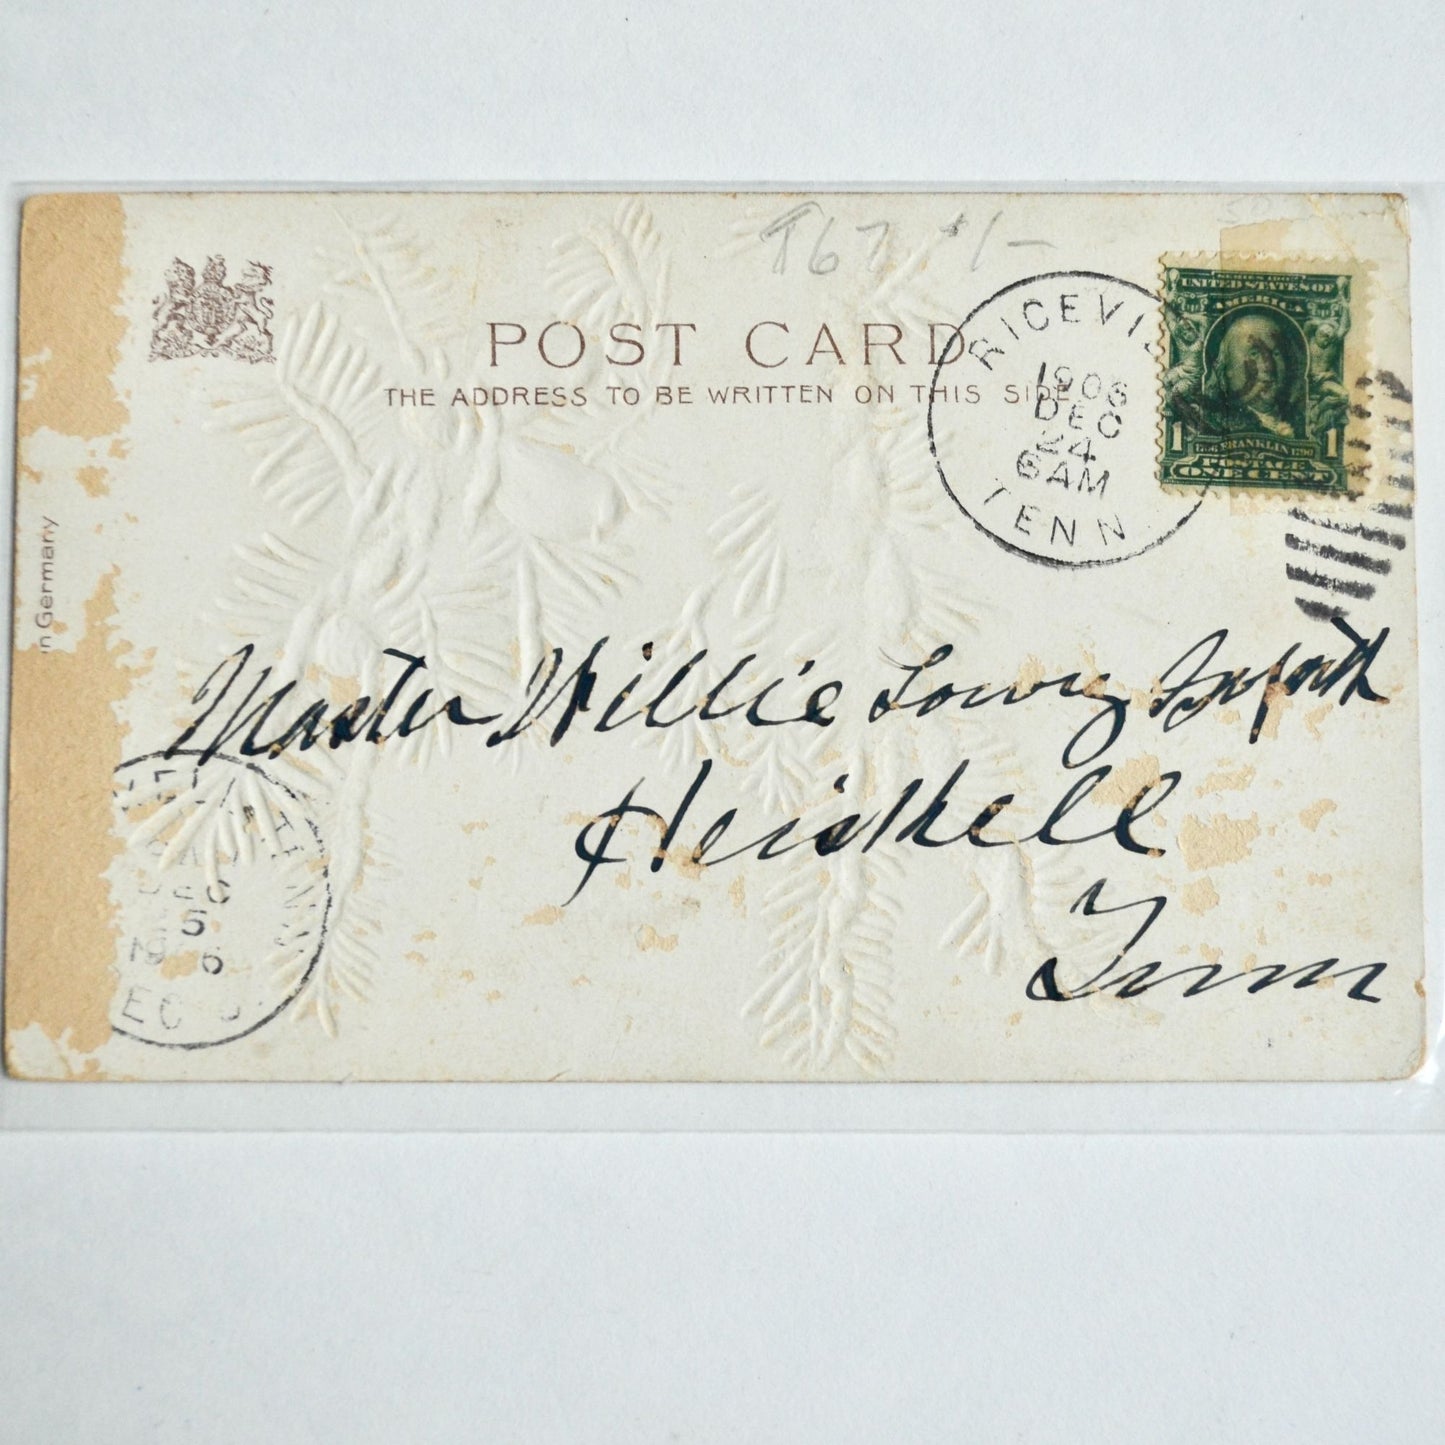 T67 +/-
POST CARD
THE ADDRESS TO BE WRITTEN ON THIS SIDE
RICEVI
1906
DEC
24
6 AM
TENN
SERIES 1902
UNITED STATES OF
AMERICA
1 1
1706 FRANKLIN 1790
POSTAGE
ONE CENT
in Germany
Master Willie Lowry
Heiskell
Tenn
DEC
5
19 6
TENN
REC'D.